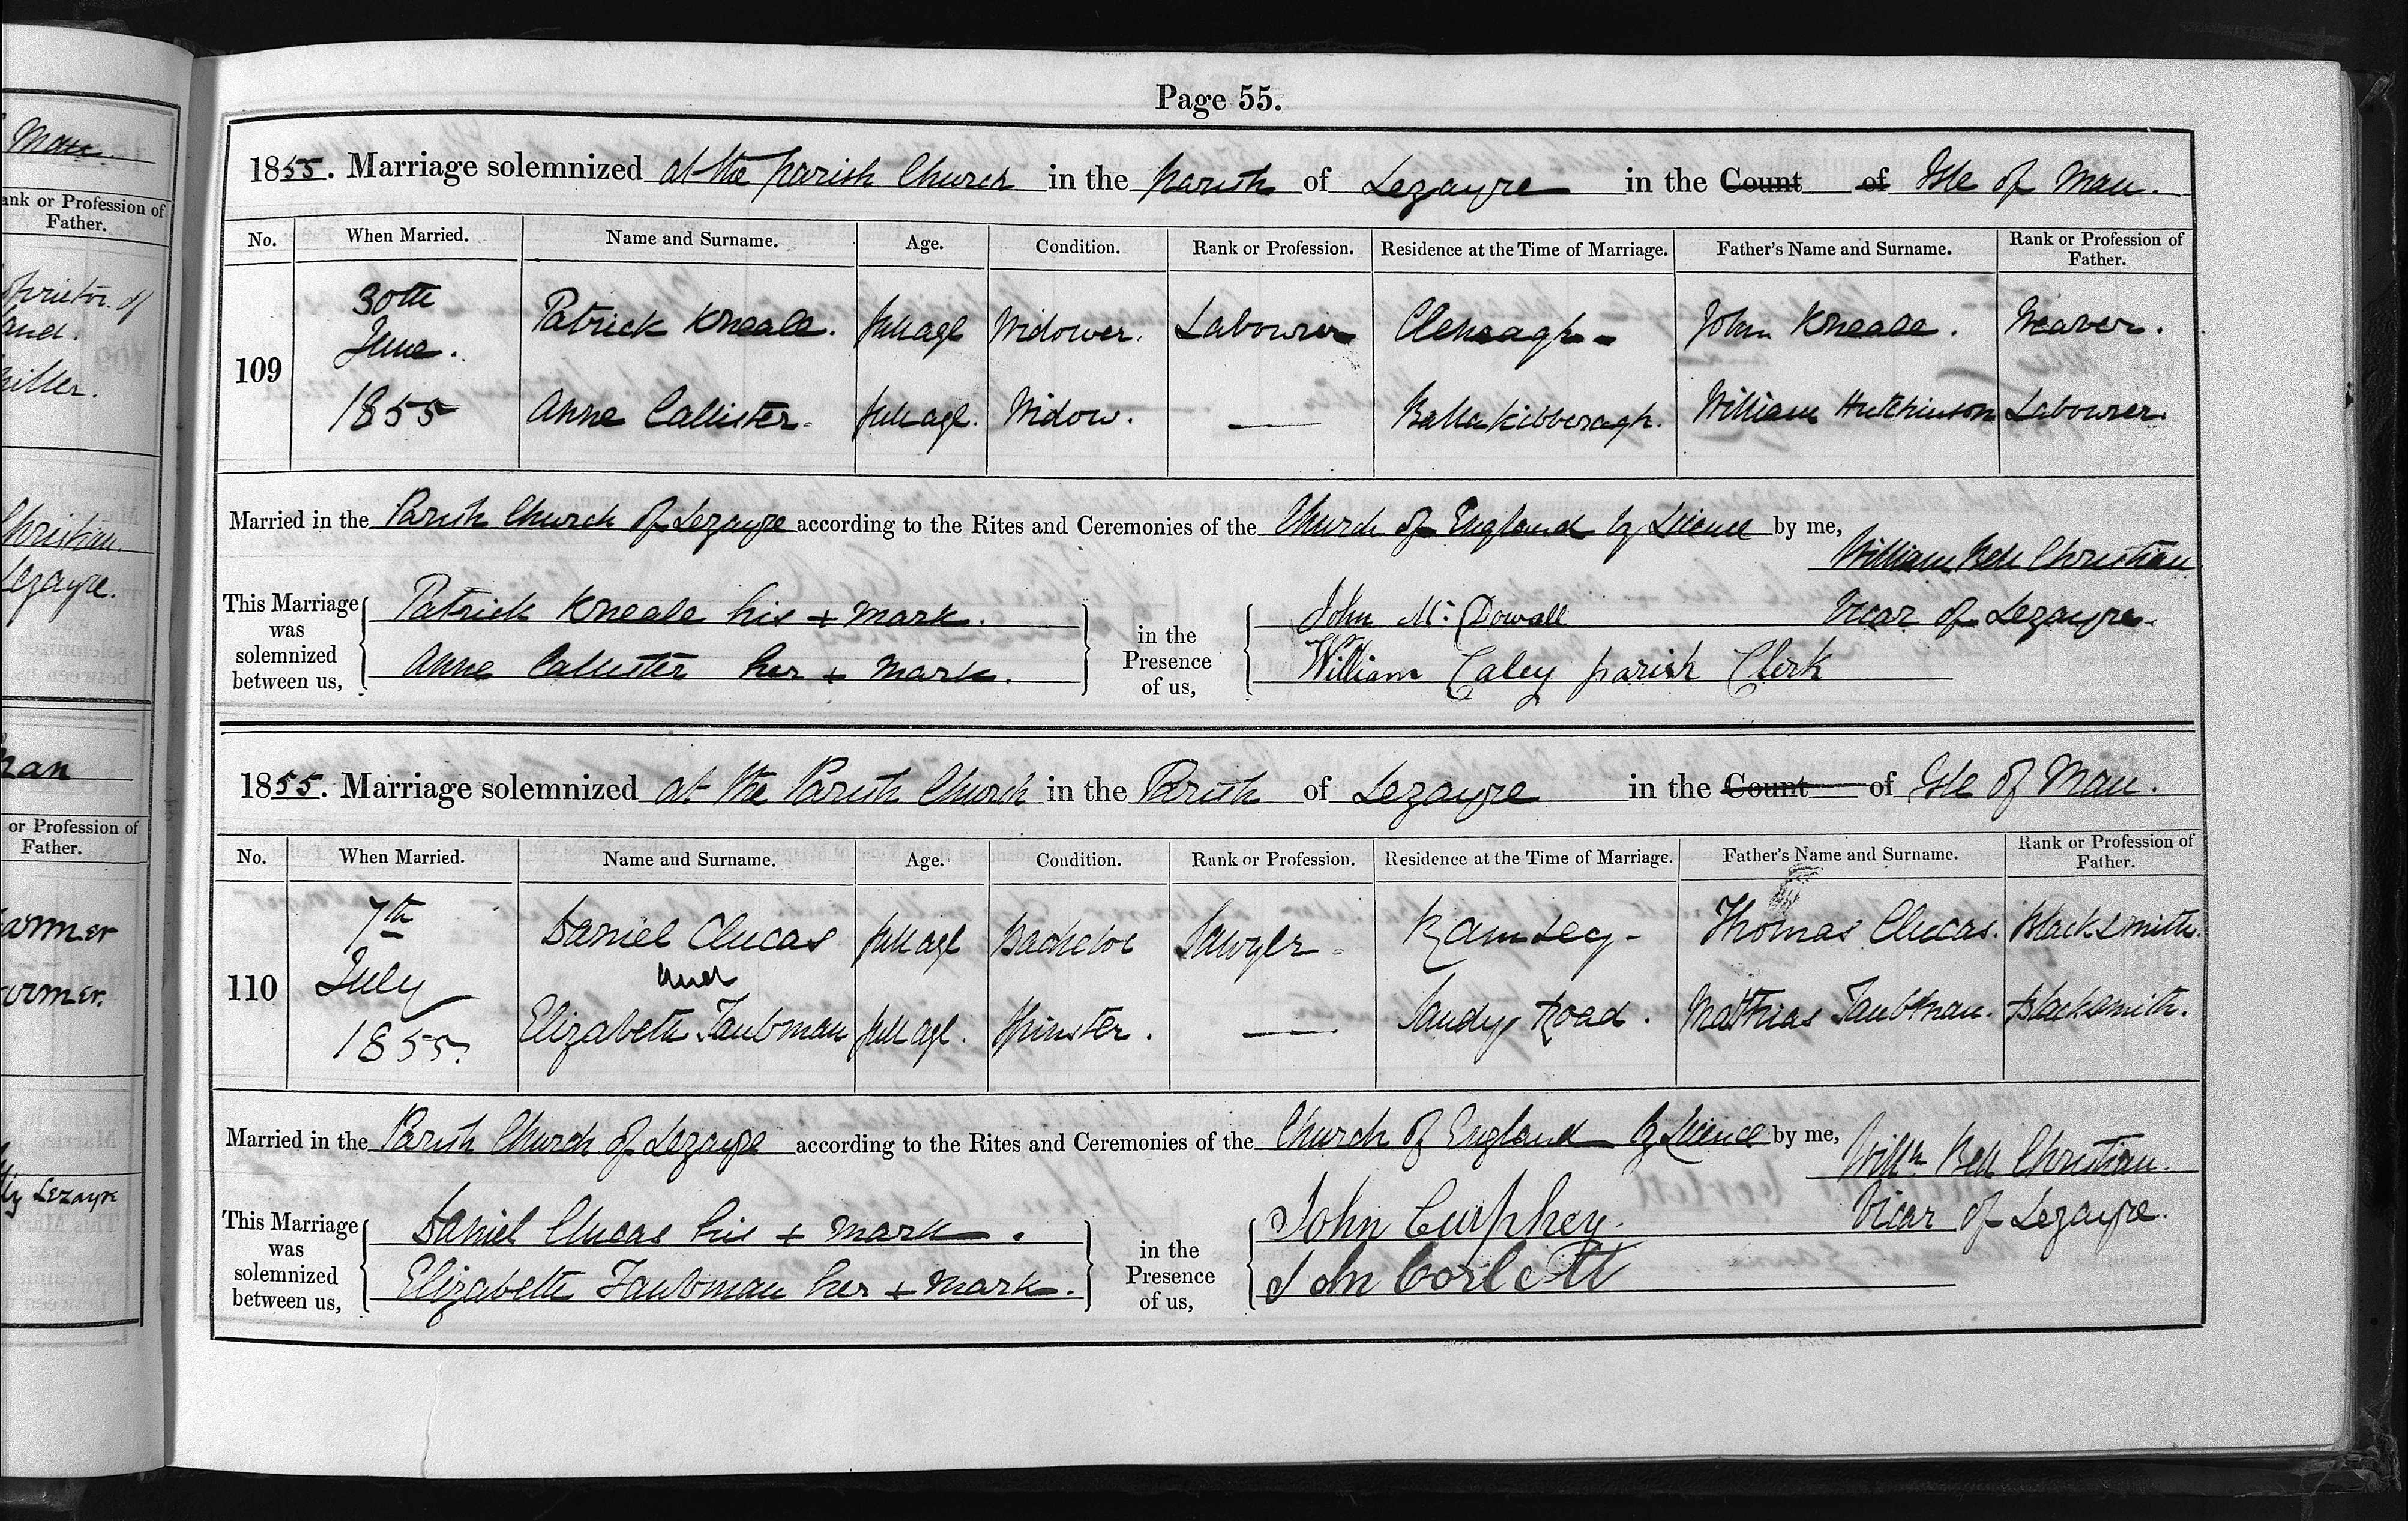 Page 55.
1855. Marriage solemnized at the parish Church in the parish of Lezayre in the Count of Isle of Man.
No. When Married. Name and Surname. Age. Condition. Rank or Profession. Residence at the Time of Marriage. Father's Name and Surname. Rank or Profession of Father.
109 30th June. 1855 Patrick Kneale. full age Widower. Labourer John Kneale. Weaver.
Anne Callister. full age. Widow. — Ballakibberagh. William Hutchinson Labourer.
Married in the Parish Church of Lezayre according to the Rites and Ceremonies of the Church of England by Licence by me,
William Bell Christian
Vicar of Lezayre.
This Marriage was solemnized between us,
Patrick Kneale his + mark.
Anne Callister her + mark.
in the Presence of us,
John Mc Dowall
William Caley parish Clerk
1855. Marriage solemnized at the Parish Church in the Parish of Lezayre in the Count of Isle of Man.
No. When Married. Name and Surname. Age. Condition. Rank or Profession. Residence at the Time of Marriage. Father's Name and Surname. Rank or Profession of Father.
110 7th July 1855. Daniel Clucas full age Bachelor Sawyer Ramsey Thomas Clucas. Blacksmith.
and
Elizabeth Taubman full age. Spinster. — Sandy Road. Mathias Taubman. Blacksmith.
Married in the Parish Church of Lezayre according to the Rites and Ceremonies of the Church of England by Licence by me,
Willm Bell Christian.
Vicar of Lezayre.
This Marriage was solemnized between us,
Daniel Clucas his + mark.
Elizabeth Taubman her + mark.
in the Presence of us,
John Curphey.
John Corlett